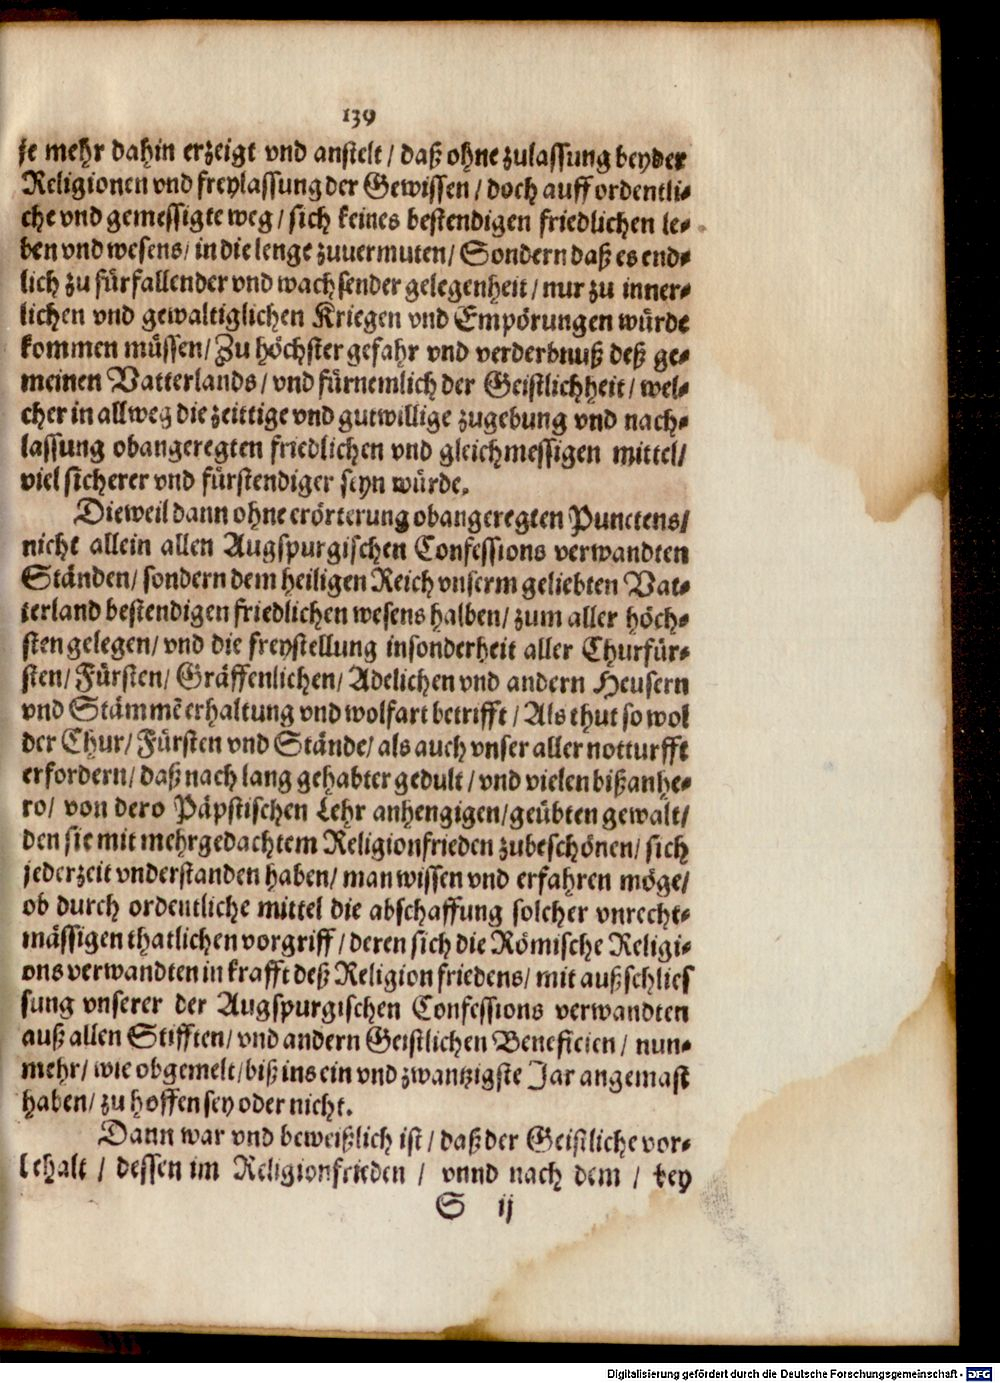 139
je mehr dahin erzeigt vnd anstelt / daß ohne zulassung beyder
Religionen vnd freylassung der Gewissen / doch auff ordentli⸗
che vnd gemessigte weg / sich keines bestendigen friedlichen le⸗
ben vnd wesens / in die lenge zuuermuten / Sondern daß es end⸗
lich zu fürfallender vnd wachsender gelegenheit / nur zu inner⸗
lichen vnd gewaltiglichen Kriegen vnd Empörungen würde
kommen müssen / Zu höchster gefahr vnd verderbnuß deß ge⸗
meinen Vatterlands / vnd fürnemlich der Geistlichheit / wel⸗
cher in allweg die zeittige vnd gutwillige zugebung vnd nach⸗
lassung obangeregten friedlichen vnd gleichmessigen mittel /
viel sicherer vnd fürstendiger seyn würde.
Dieweil dann ohne erörterung obangeregten Punctens /
nicht allein allen Augspurgischen Confessions verwandten
Ständen / sondern dem heiligen Reich vnserm geliebten Vat⸗
terland bestendigen friedlichen wesens halben / zum aller höch⸗
sten gelegen / vnd die freystellung insonderheit aller Churfür⸗
sten / Fürsten / Gräffenlichen / Adelichen vnd andern Heusern
vnd Stämmẽ erhaltung vnd wolfart betrifft / Als thut so wol
der Chur / Fürsten vnd Stände / als auch vnser aller notturfft
erfordern / daß nach lang gehabter gedult / vnd vielen bißanhe⸗
ro / von dero Päpstischen Lehr anhengigen / geübten gewalt /
den sie mit mehrgedachtem Religionfrieden zubeschönen / sich
jederzeit vnderstanden haben / man wissen vnd erfahren möge /
ob durch ordentliche mittel die abschaffung solcher vnrecht⸗
mässigen thatlichen vorgriff / deren sich die Römische Religi⸗
ons verwandten in krafft deß Religion friedens / mit außschlies
sung vnserer der Augspurgischen Confessions verwandten
auß allen Stifften / vnd andern Geistlichen Beneficien / nun⸗
mehr / wie obgemelt / biß ins ein vnd zwantzigste Jar angemast
haben / zu hoffen sey oder nicht.
Dann war vnd beweißlich ist / daß der Geistliche vor⸗
behalt / dessen im Religionfrieden / vnnd nach dem / bey
S ij
Digitalisierung gefördert durch die Deutsche Forschungsgemeinschaft - DFG